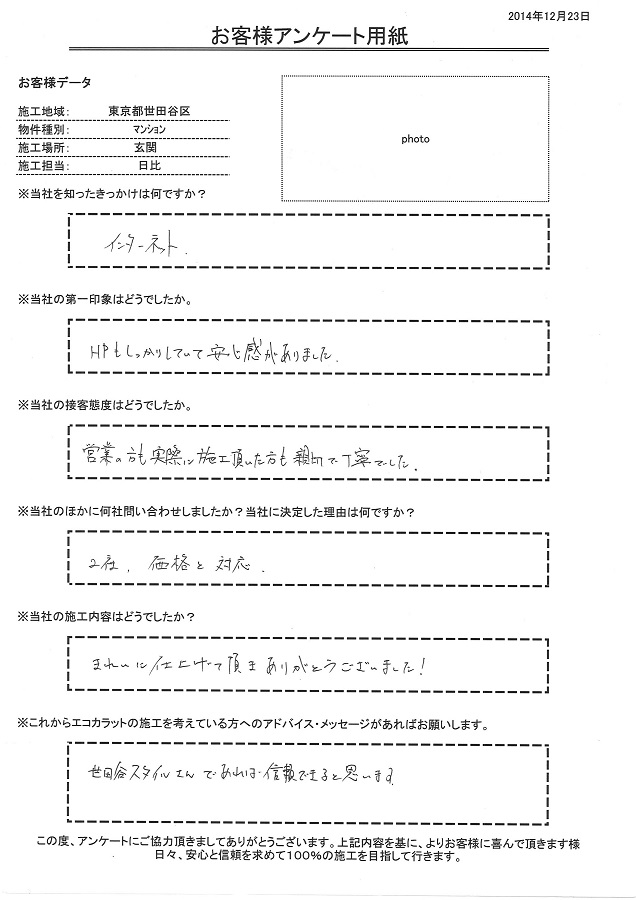 2014年12月23日
お客様アンケート用紙
お客様データ
施工地域: 東京都世田谷区
物件種別: マンション
施工場所: 玄関
施工担当: 日比
photo
※当社を知ったきっかけは何ですか？
インターネット.
※当社の第一印象はどうでしたか。
HPもしっかりしていて安心感がありました.
※当社の接客態度はどうでしたか。
営業の方も実際に施工頂いた方も親切で丁寧でした.
※当社のほかに何社問い合わせしましたか？当社に決定した理由は何ですか？
2社. 価格と対応.
※当社の施工内容はどうでしたか？
きれいに仕上げて頂きありがとうございました！
※これからエコカラットの施工を考えている方へのアドバイス・メッセージがあればお願いします。
世田谷スタイルさんであれば信頼できると思います.
この度、アンケートにご協力頂きましてありがとうございます。上記内容を基に、よりお客様に喜んで頂きます様
日々、安心と信頼を求めて100%の施工を目指して行きます。